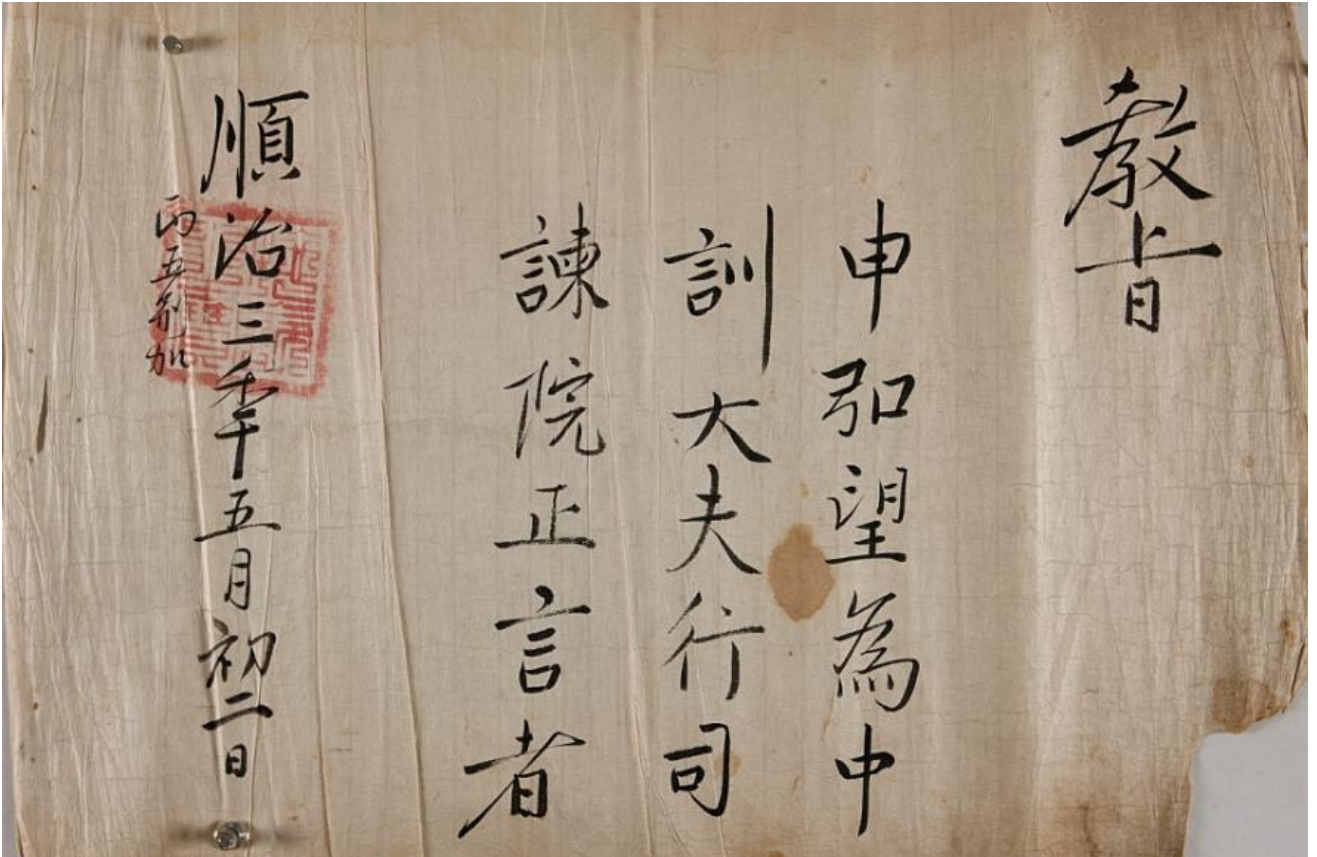 教旨
申弘望為中
訓大夫行司
諫院正言者
順治三年五月初二日
丙五別加